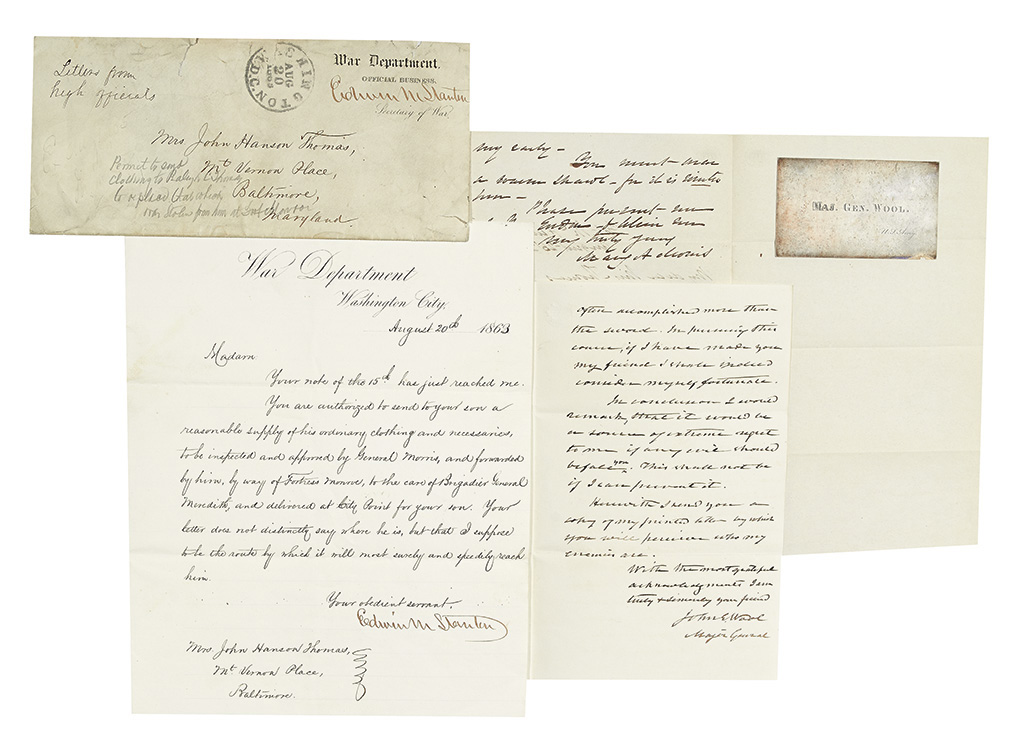 Letters from
high officials
WASHINGTON D.C.
AUG
20
1863
War Department.
OFFICIAL BUSINESS.
Edwin M Stanton
Secretary of War.
Mrs John Hanson Thomas,
Mt Vernon Place,
Baltimore,
Maryland
Permit to send
clothing to
to replace that which
was stolen from him at
my early -
You must wear
a warm shawl - for it is
Please present me
very truly yours
MAJ. GEN. WOOL.
U.S. Army
War Department
Washington City,
August 20th 1863
Madam
Your note of the 15th has just reached me.
You are authorized to send to your son a
reasonable supply of his ordenary clothing and necessaries,
to be inspected and approved by General Morris, and forwarded
by him, by way of Fortress Monroe, to the care of Brigadier General
Meredith, and delivered at City Point for your son. Your
letter does not distinctly say where he is, but that I suppose
to be the route by which it will most surely and speedily reach
him.
Your obedient servant,
Edwin M Stanton
Mrs. John Hanson Thomas,
Mt Vernon Place,
Baltimore.
often accomplished more than
the sword. In pursuing this
course, if I have made you
my friend I shall indeed
consider myself fortunate.
In conclusion I would
remark, that it would be
a source of extreme regret
to me if any evil should
befall you. This shall not be
if I can prevent it.
Herewith I send you a
copy of my printed letter by which
you will perceive who my
enemies are.
With the most grateful
acknowledgments I am
truly & sincerely your friend
John E Wool
Major General